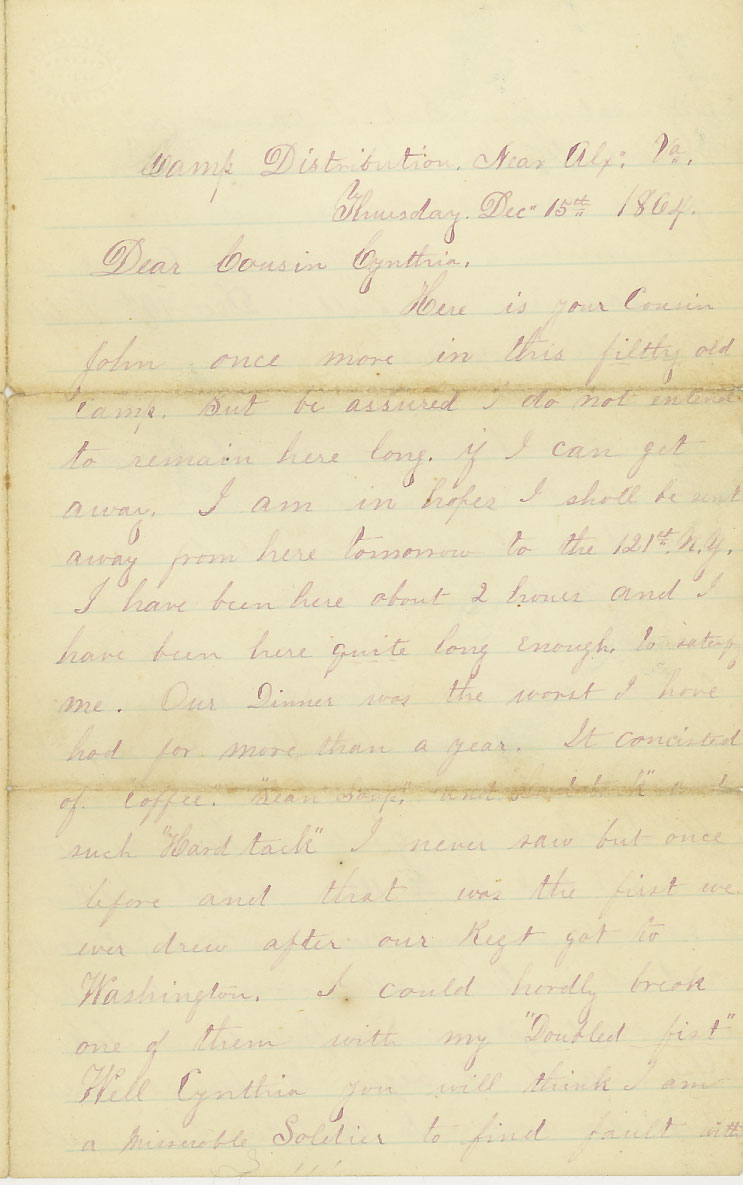 Camp Distribution. Near Alx: Va.
Thursday. Dec" 15th 1864.
Dear Cousin Cynthia.
Here is your Cousin
John once more in this filthy old
Camp. But be assured I do not entend
to remain here long. if I can get
away. I am in hopes I shall be sent
away from here tomorrow to the 121st. N.Y.
I have been here about 2 hours and I
have been here quite long enough. to
me. Our Dinner was the worst I have
had for more than a year. It concisted
of "Coffee". "Bean Soup," and "Hard tack" and
such "Hard tack" I never saw but once
before and that was the first we
ever drew after our Regt got to
Washington. I could hardly break
one of them with my "Doubled fist"
Well Cynthia you will think I am
a miserable Soldier to find fault with